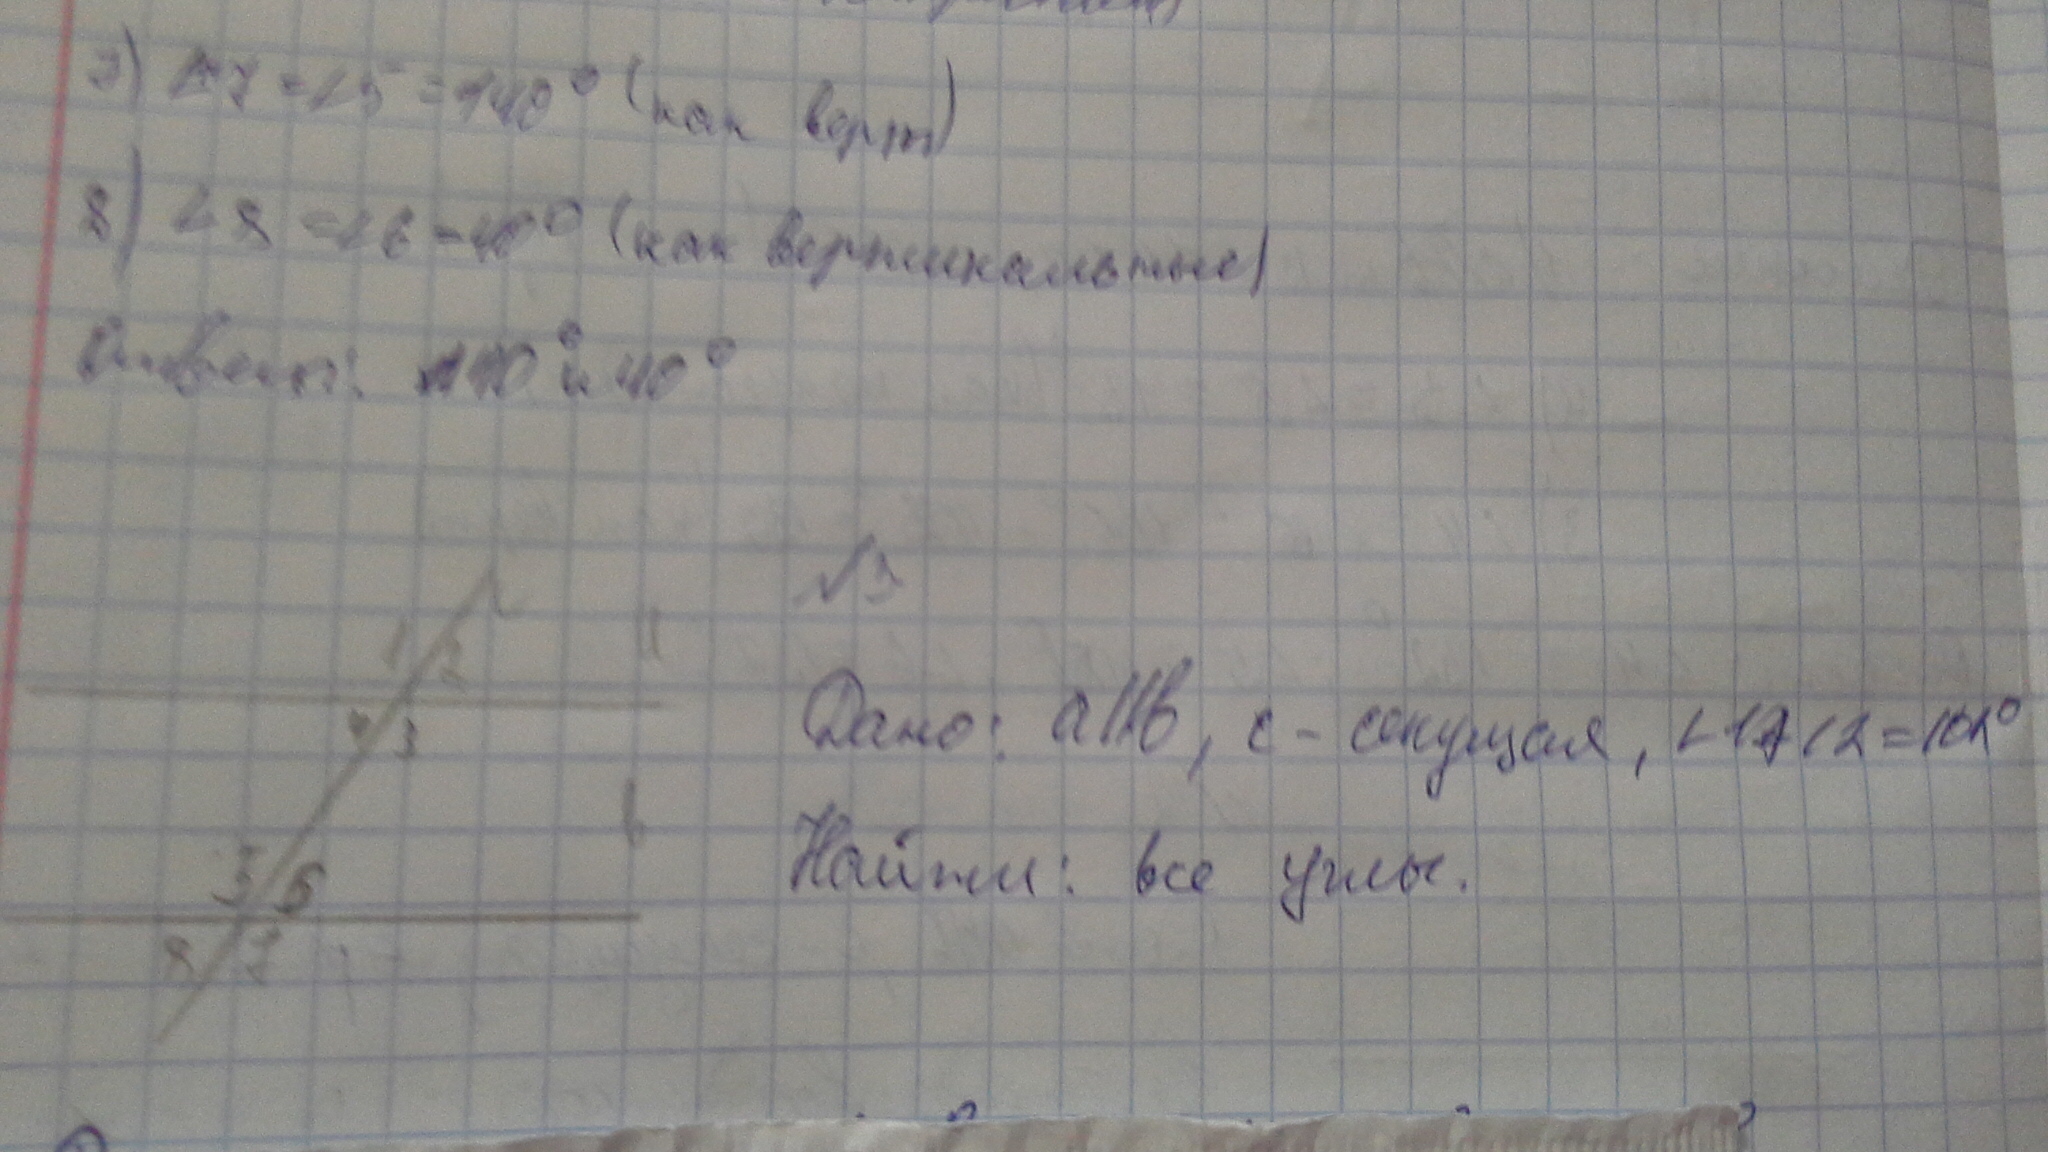 7) ∠7=∠5=140° (как верт)
8) ∠8=∠6=40° (как вертикальные)
Ответ: 140° и 40°
√3
1 2
4 3
Дано: a||b, c - секущая, ∠1 ∠2=102°
Найти: все углы.
5 6
8 7